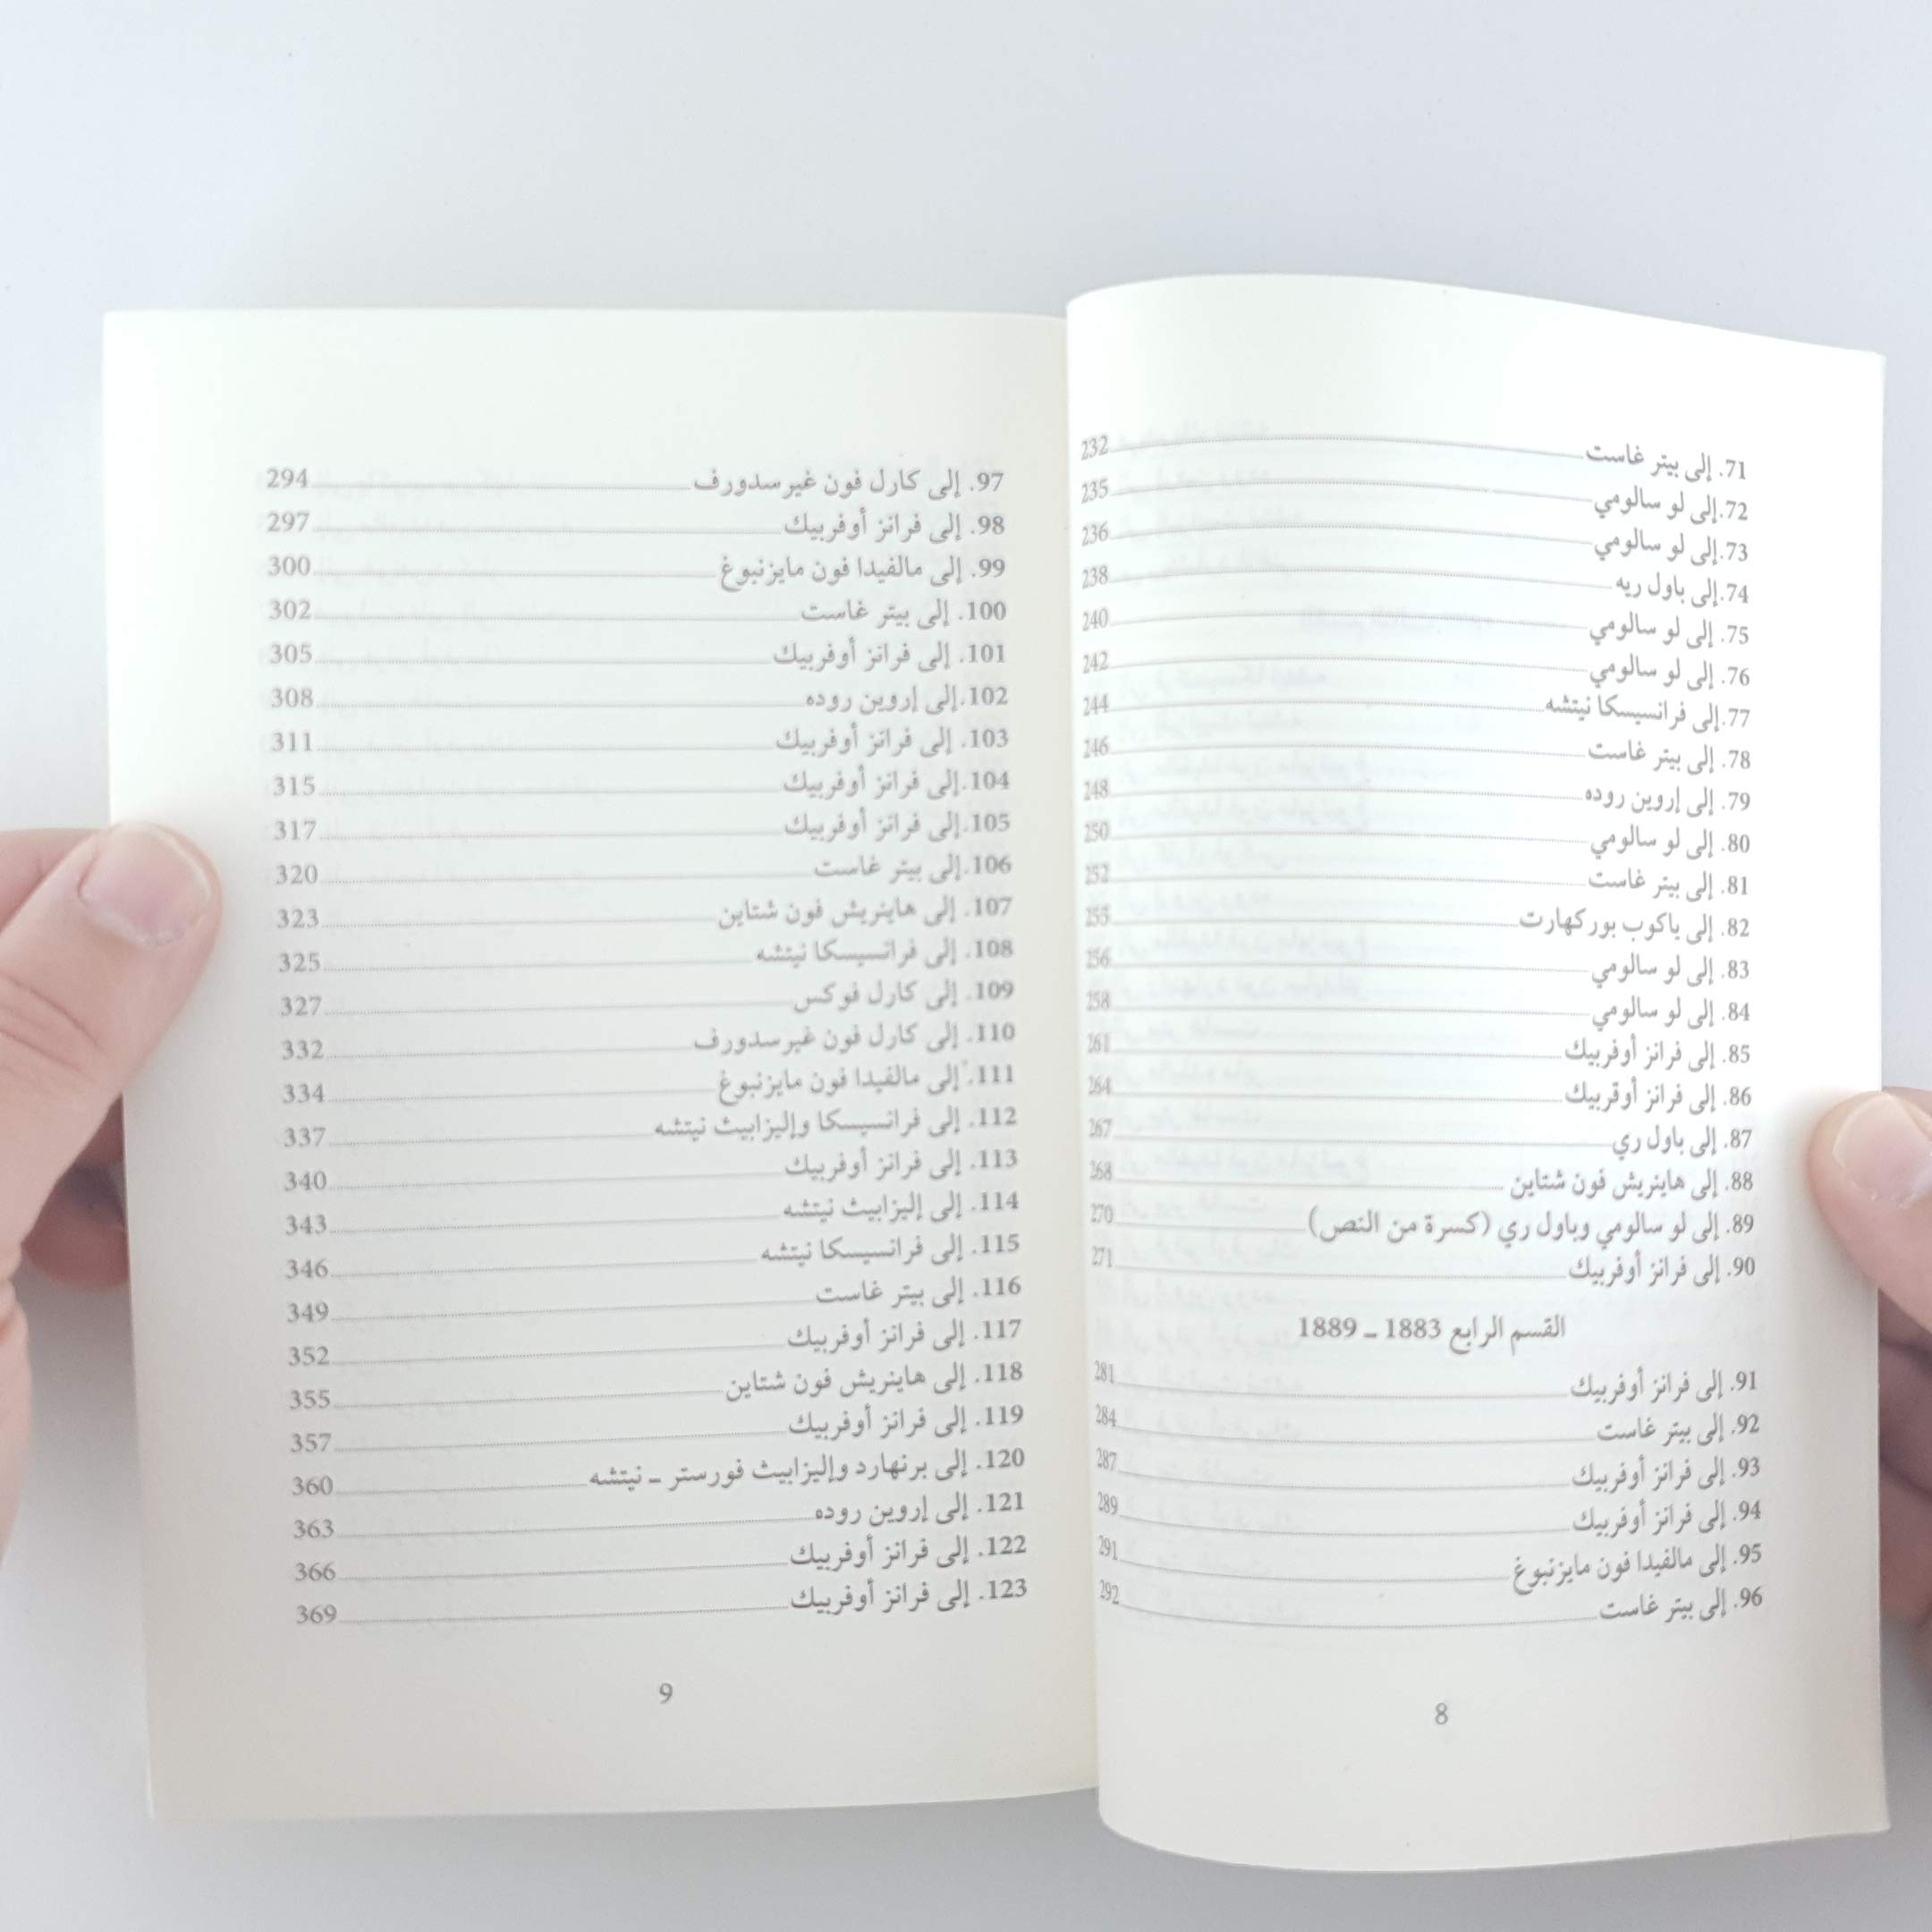 71. إلى بيتر غاست 232
72.إلى لو سالومي 235
73.إلى لو سالومي 236
74.إلى باول ريه 238
75. إلى لو سالومي 240
76. إلى لو سالومي 242
77.إلى فرانسيسكا نيتشه 244
78. إلى بيتر غاست 246
79. إلى إروين روده 248
80. إلى لو سالومي 250
81. إلى بيتر غاست 252
82. إلى ياكوب بوركهارت 255
83. إلى لو سالومي 256
84. إلى لو سالومي 258
85. إلى فرانز أوفربيك 261
86. إلى فرانز أوقربيك 264
87. إلى باول ري 267
88. إلى هاينريش فون شتاين 268
89. إلى لو سالومي وباول ري (كسرة من النص) 270
90. إلى فرانز أوفربيك 271
القسم الرابع 1883 ـ 1889
91. إلى فرانز أوفربيك 281
92. إلى بيتر غاست 284
93. إلى فرانز أوفربيك 287
94. إلى فرانز أوفربيك 289
95. إلى مالفيدا فون مايزنبوغ 291
96. إلى بيتر غاست 292
8
97. إلى كارل فون غيرسدورف 294
98. إلى فرانز أوفربيك 297
99. إلى مالفيدا فون مايزنبوغ 300
100. إلى بيتر غاست 302
101. إلى فرانز أوفربيك 305
102.إلى إروين روده 308
103. إلى فرانز أوفربيك 311
104.إلى فرانز أوفربيك 315
105.إلى فرانز أوفربيك 317
106.إلى بيتر غاست 320
107. إلى هاينريش فون شتاين 323
108. إلى فرانسيسكا نيتشه 325
109. إلى كارل فوكس 327
110. إلى كارل فون غيرسدورف 332
111. إلى مالفيدا فون مايزنبوغ 334
112. إلى فرانسيسكا وإليزابيث نيتشه 337
113. إلى فرانز أوفربيك 340
114. إلى إليزابيث نيتشه 343
115. إلى فرانسيسكا نيتشه 346
116. إلى بيتر غاست 349
117. إلى فرانز أوفربيك 352
118. إلى هاينريش فون شتاين 355
119. إلى فرانز أوفربيك 357
120. إلى برنهارد وإليزابيث فورستر ـ نيتشه 360
121. إلى إروين روده 363
122. إلى فرانز أوفربيك 366
123. إلى فرانز أوفربيك 369
9